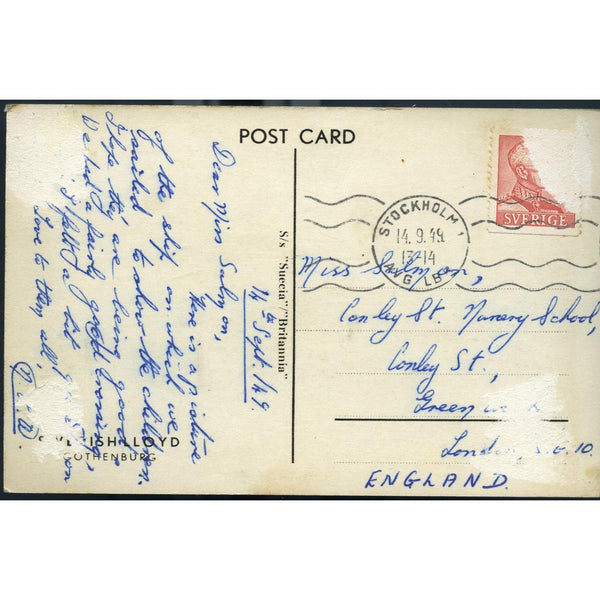 POST CARD
14th Sept. 149.
Dear Miss Salmon,
Here is a picture
of the ship on which we
sailed to show the children.
I hope they are being good.
We had a fairly good crossing,
I felt a bit
Love to them all,
S/s "Suecia"/"Britannia"
ISH LLOYD
GOTHENBURG
SVERIGE
STOCKHOLM 1
14.9.49
13-14
AVG LB
Miss Salmon,
Conley St. Nursery School,
Conley St.,
Green
London, S.E.10.
ENGLAND.